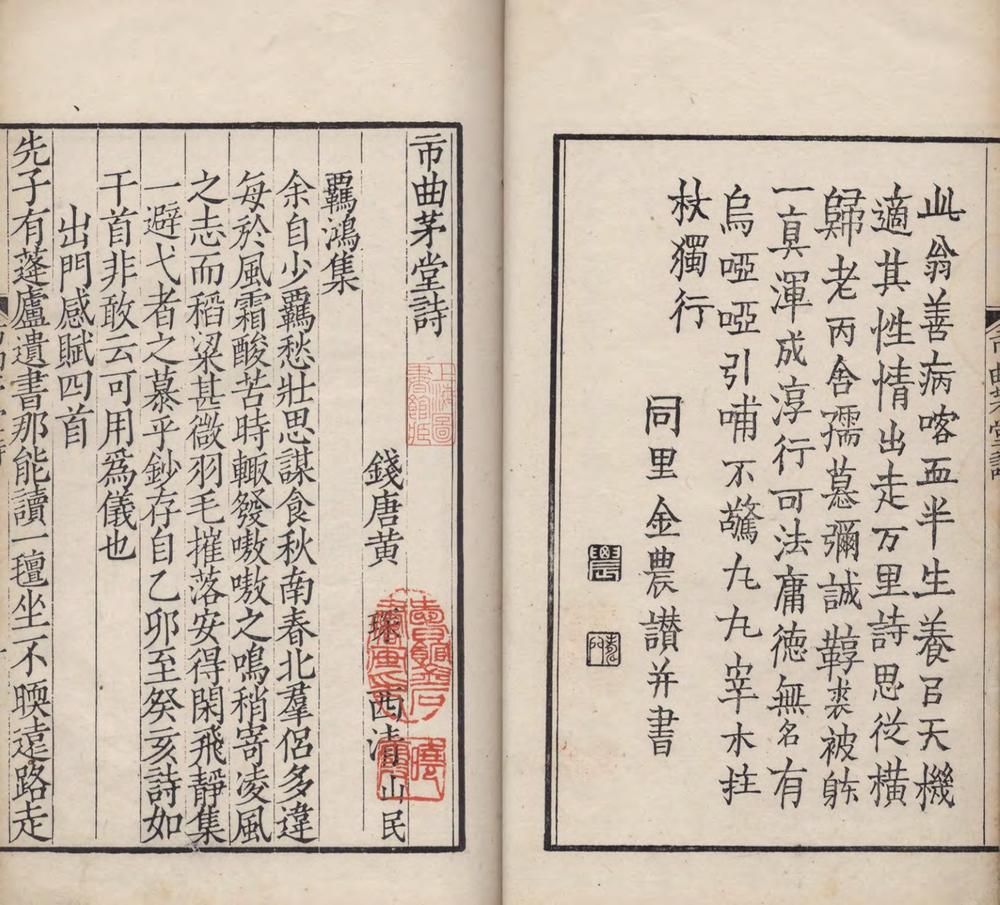 此翁善病喀血半生養㠯天機
適其性情出走万里詩思從橫
歸老丙舍孺慕彌誠鞟裘被躰
一真渾成淳行可法庸德無名有
烏啞啞引哺不驚九九宰木拄
杖獨行
同里金農讃并書
市曲茅堂詩
上海圖書館藏
錢唐黃 琛 西清 山民
羈鴻集
余自少羈愁壯思謀食秋南春北羣侶多違
每於風霜酸苦時輙發嗷嗷之鳴稍寄凌風
之志而稻粱甚微羽毛摧落安得閑飛靜集
一避弋者之慕乎鈔存自乙卯至癸亥詩如
干首非敢云可用爲儀也
出門感賦四首
先子有蓬廬遺書那能讀一氊坐不暖遠路走